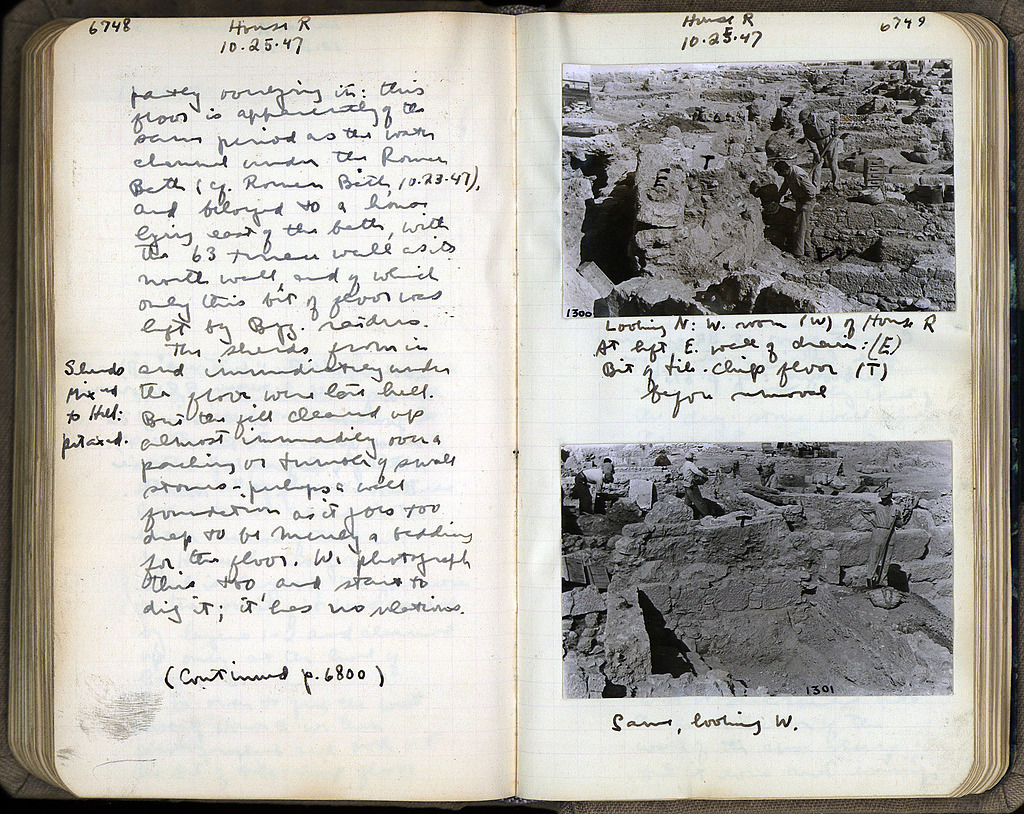 6748
House R
10.25.47
partly overlying it: this
floor is apparently of the
same period as the water
channel under the Roman
Bath (cf. Roman Bath, 10.23.47),
and belonged to a house
lying east of the bath, with
the 63 wall as its
north wall, and of which
only this bit of floor was
left by Byz. raiders.
The sherds from in
and immediately under
the floor were late hell.
But the fill cleaned up
almost immediately over a
packing or tumble of small
stones - perhaps a wall
foundation as it goes too
deep to be merely a bedding
for the floor. We photograph
this too and start to
dig it; it has no relations.
Sherds
Mixed
to Hell:
(Continued p. 6800)
House R
10.25.47
6749
E
T
W
1300
Looking N: W. room (W) of House R
At left, E. wall of drain: (E)
Bit of tile-chip floor (T)
before removal
T
1301
Same, looking W.